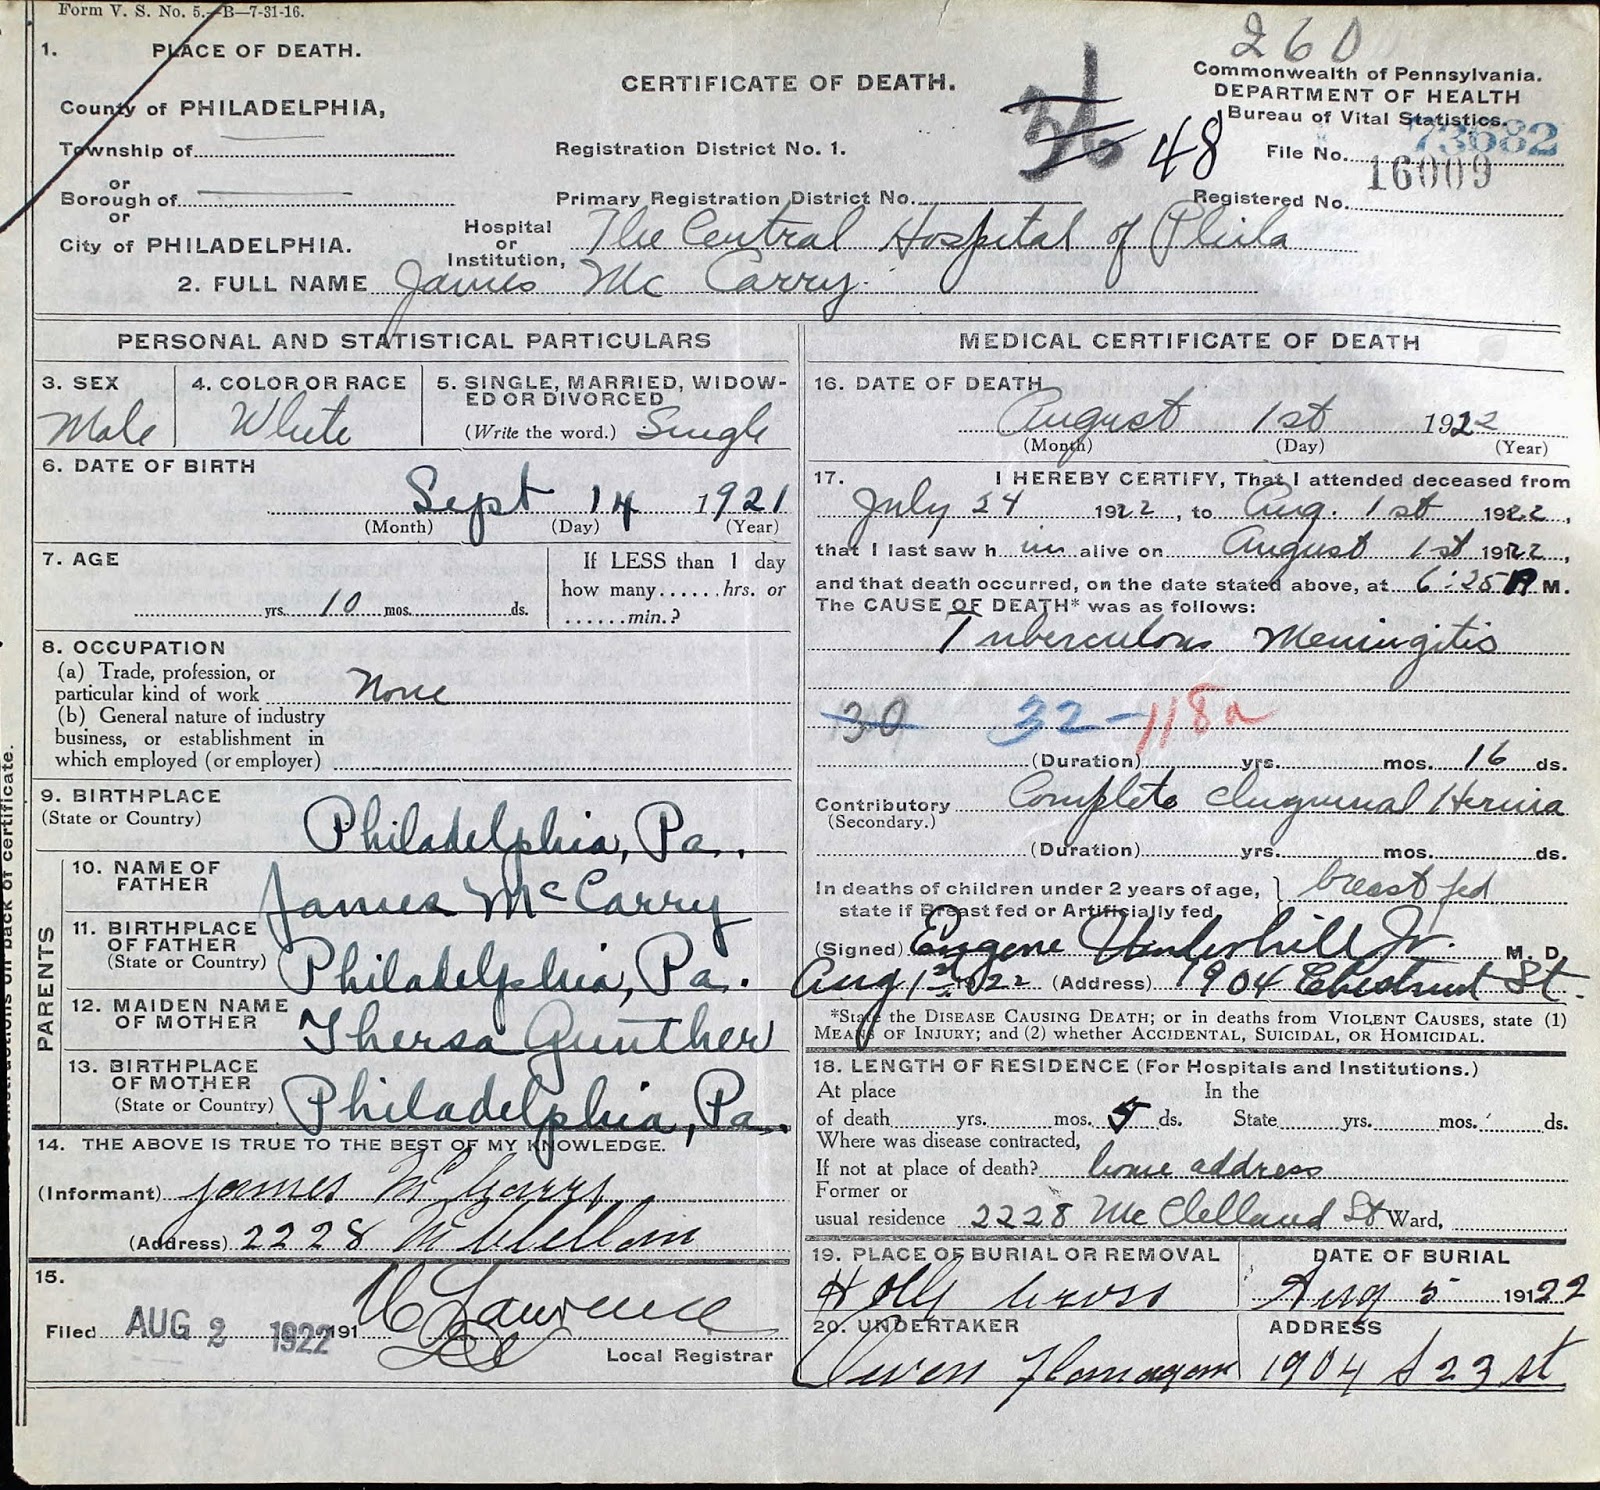 Form V. S. No. 5.—B—7-31-16.
260
1. PLACE OF DEATH.
CERTIFICATE OF DEATH.
Commonwealth of Pennsylvania.
DEPARTMENT OF HEALTH
Bureau of Vital Statistics.
County of PHILADELPHIA,
Township of
Registration District No. 1.
36 48
File No. 73682
16009
or
Borough of
or
Primary Registration District No.
Registered No.
City of PHILADELPHIA.
Hospital
or
Institution, The Central Hospital of Phila
2. FULL NAME James Mc Carry.
PERSONAL AND STATISTICAL PARTICULARS
3. SEX
Male
4. COLOR OR RACE
White
5. SINGLE, MARRIED, WIDOW-
ED OR DIVORCED
(Write the word.) Single
6. DATE OF BIRTH
Sept 14 1921
(Month) (Day) (Year)
7. AGE
yrs. 10 mos. ds.
If LESS than 1 day
how many......hrs. or
......min.?
8. OCCUPATION
(a) Trade, profession, or
particular kind of work None
(b) General nature of industry
business, or establishment in
which employed (or employer)
9. BIRTHPLACE
(State or Country) Philadelphia, Pa.
PARENTS
10. NAME OF
FATHER James McCarry
11. BIRTHPLACE
OF FATHER
(State or Country) Philadelphia, Pa.
12. MAIDEN NAME
OF MOTHER Thersa Gunther
13. BIRTHPLACE
OF MOTHER
(State or Country) Philadelphia, Pa.
14. THE ABOVE IS TRUE TO THE BEST OF MY KNOWLEDGE.
(Informant) James McCarry
(Address) 2228 McClellan
15.
Filed AUG 2 1922 191 Lawrence
Local Registrar
MEDICAL CERTIFICATE OF DEATH
16. DATE OF DEATH
August 1st 1922
(Month) (Day) (Year)
17. I HEREBY CERTIFY, That I attended deceased from
July 24 1922, to Aug. 1st 1922,
that I last saw h im alive on August 1st 1922,
and that death occurred, on the date stated above, at 6:25 M.
The CAUSE OF DEATH* was as follows:
Tuberculous Meningitis
30 32-118a
(Duration) yrs. mos. 16 ds.
Contributory Complete Inguinal Hernia
(Secondary.)
(Duration) yrs. mos. ds.
In deaths of children under 2 years of age,
state if Breast fed or Artificially fed } breast fed
(Signed) Eugene Underhill Jr. M. D.
Aug 1st 1922 (Address) 1904 Chestnut St.
*State the DISEASE CAUSING DEATH; or in deaths from VIOLENT CAUSES, state (1)
MEANS OF INJURY; and (2) whether ACCIDENTAL, SUICIDAL, OR HOMICIDAL.
18. LENGTH OF RESIDENCE (For Hospitals and Institutions.)
At place In the
of death yrs. mos. 5 ds. State yrs. mos. ds.
Where was disease contracted,
If not at place of death? home address
Former or
usual residence 2228 McClelland St Ward,
19. PLACE OF BURIAL OR REMOVAL
Holly Cross
DATE OF BURIAL
Aug 5 1922
20. UNDERTAKER
Owen Flanagan
ADDRESS
1904 S 23 st
instructions on back of certificate.